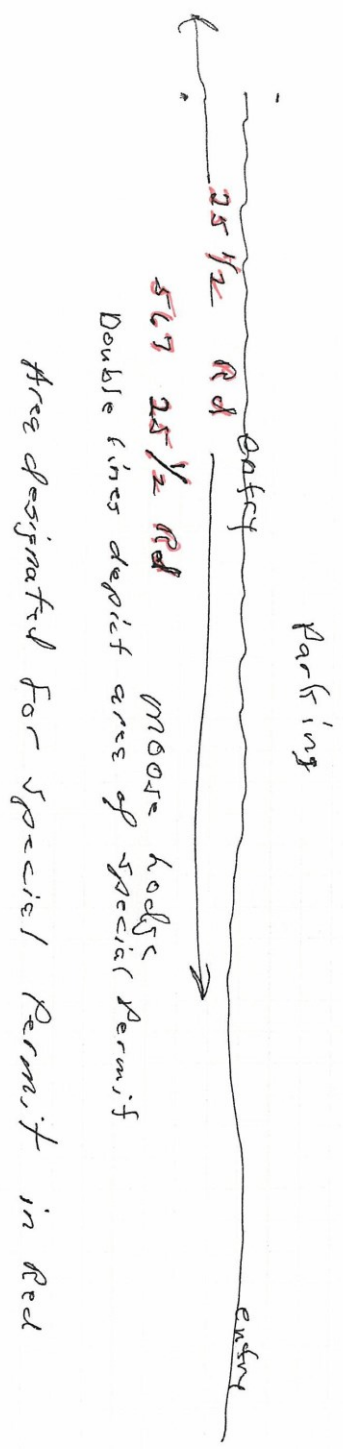 Parking
entry
entry
25 1/2 Rd
567 25 1/2 Rd
Moose Lodge
Double Lines depict area of special Permit
Area designated for special Permit in Red